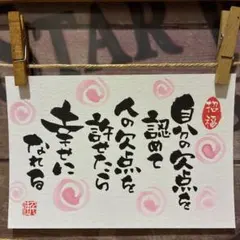 招福
自分の欠点を
認めて
人の欠点を
許せたら
幸せに
なれる
STAR